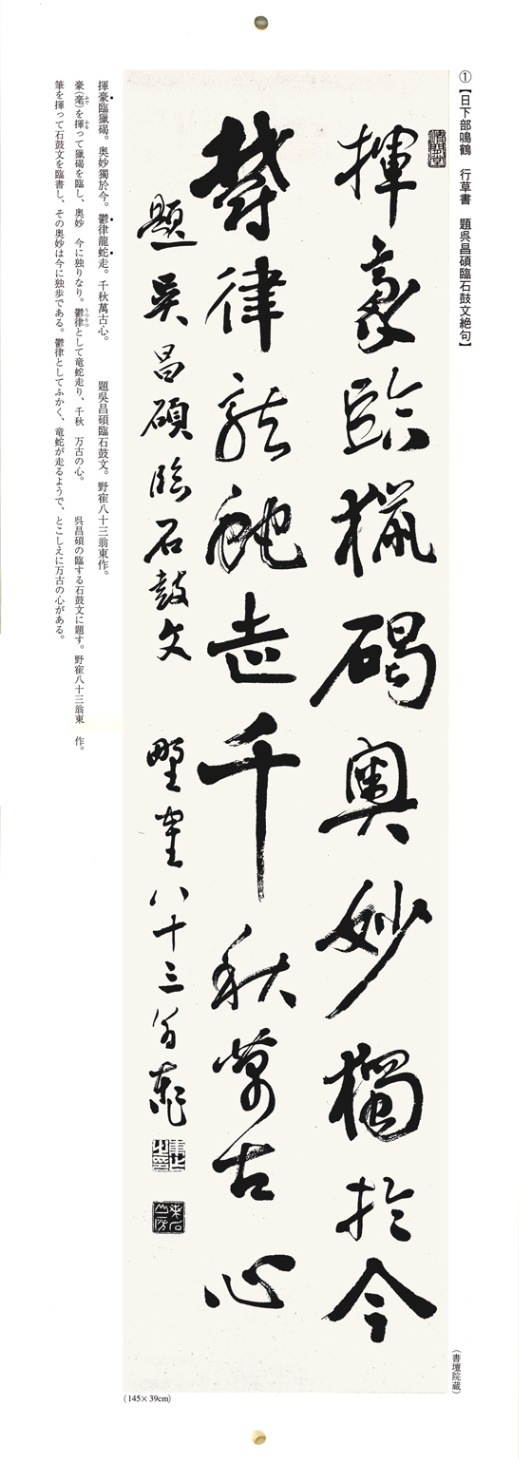 ①【日下部鳴鶴　行草書　題呉昌碩臨石鼓文絶句】
揮豪臨獵碣奥妙獨於今
鬱律龍蛇走千秋萬古心
題吳昌碩臨石鼓文　野寉八十三翁東作
（書壇院蔵）
(145×39cm)
揮豪臨獵碣。奥妙獨於今。鬱律龍蛇走。千秋萬古心。　題呉昌碩臨石鼓文。野寉八十三翁東作。
豪（毫）を揮って獵碣を臨し、奥妙　今に独りなり。鬱律として竜蛇走り、千秋　万古の心。　呉昌碩の臨する石鼓文に題す。野寉八十三翁東　作。
筆を揮って石鼓文を臨書し、その奥妙は今に独歩である。鬱律としてふかく、竜蛇が走るようで、とこしえに万古の心がある。